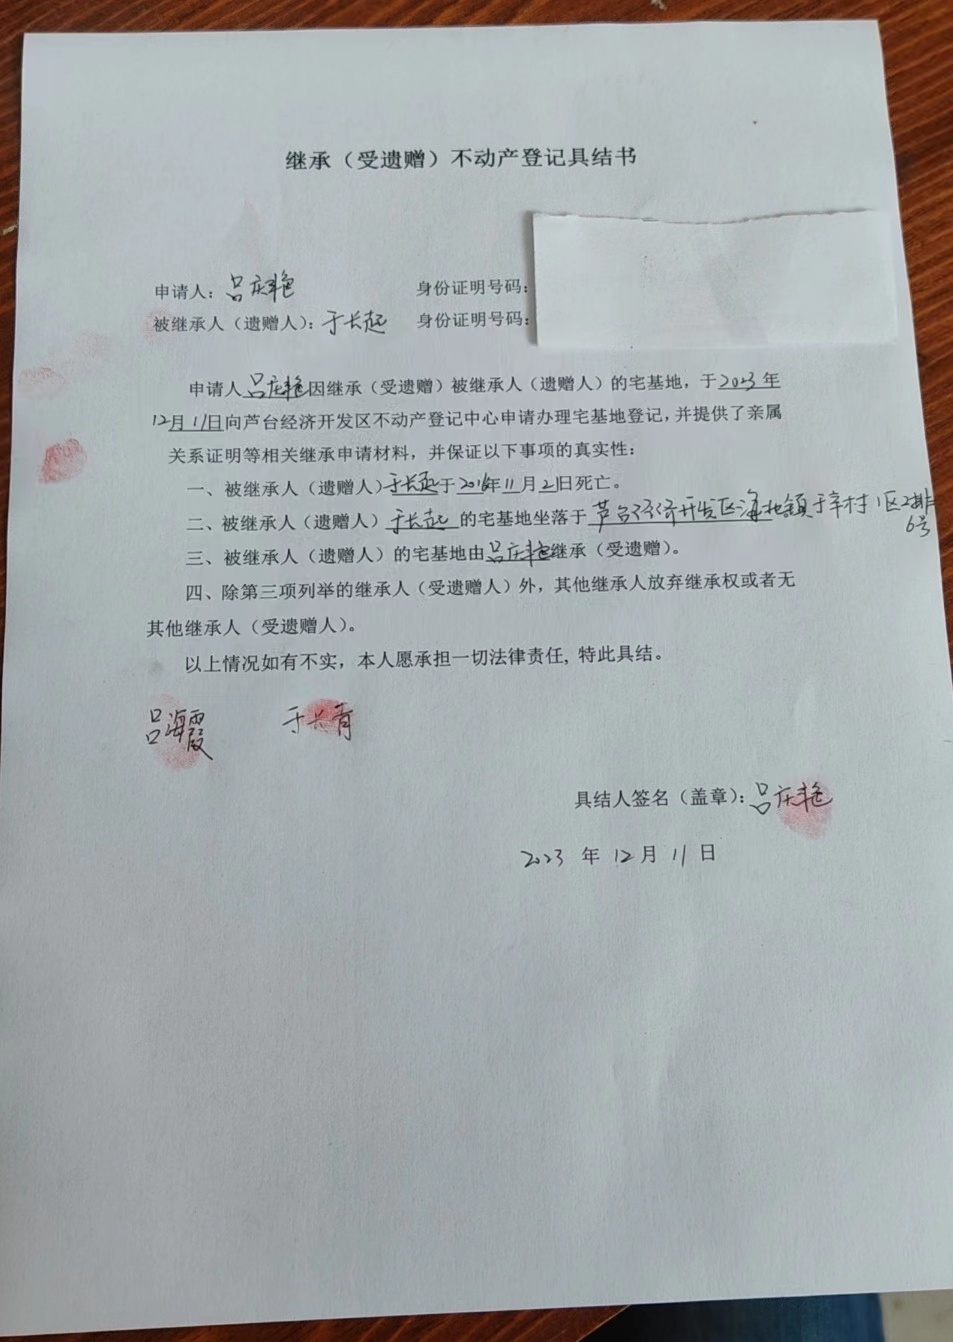 继承（受遗赠）不动产登记具结书
申请人：吕庆艳 身份证明号码：
被继承人（遗赠人）：于长起 身份证明号码：
申请人吕庆艳因继承（受遗赠）被继承人（遗赠人）的宅基地，于2023年
12月11日向芦台经济开发区不动产登记中心申请办理宅基地登记，并提供了亲属
关系证明等相关继承申请材料，并保证以下事项的真实性：
一、被继承人（遗赠人）于长起于2016年11月2日死亡。
二、被继承人（遗赠人）于长起的宅基地坐落于芦台经济开发区海北镇于辛村1区2排
6号
三、被继承人（遗赠人）的宅基地由吕庆艳继承（受遗赠）。
四、除第三项列举的继承人（受遗赠人）外，其他继承人放弃继承权或者无
其他继承人（受遗赠人）。
以上情况如有不实，本人愿承担一切法律责任, 特此具结。
吕海霞 于长青
具结人签名（盖章）：吕庆艳
2023 年 12 月 11 日